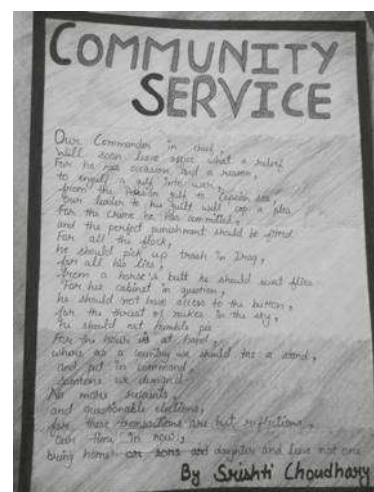 COMMUNITY
SERVICE
Our Commander in chief,
Will soon leave office what a relief
For he has occasions and a reason,
to engulf a gulf into war,
from the Persian gulf to Caspian sea,
our leader to his guilt will cop a plea
For the crime he has committed,
and the perfect punishment should be fitted
For all the flock,
he should pick up trash in Iraq,
for all his lies,
from a horse's butt he should swat flies
For his cabinet in question,
he should not have access to the button,
for the threat of nukes in the sky,
he should eat humble pie
For the hour is at hand,
where as a country we should take a stand,
and put in command,
someone we demand
No more repeats,
and questionable elections,
for these transactions are but reflections,
our time is now,
bring home our sons and daughter and leave not one
By Srishti Choudhary